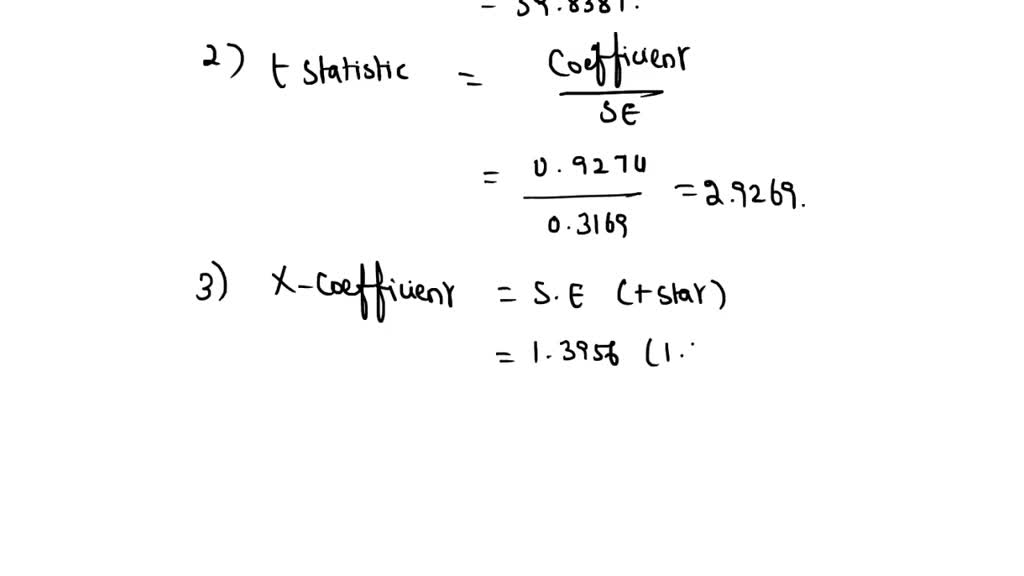 = 59.8381.
2) t statistic = Coefficient
SE
= 0.9274
0.3169 = 2.9269.
3) X-coefficient = S.E (t stat)
= 1.3956 (1.